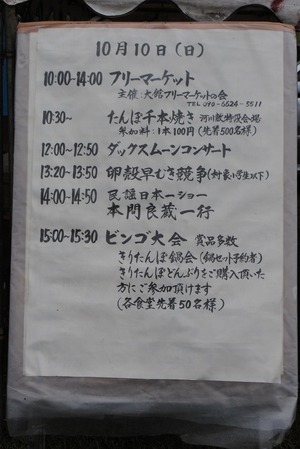 10月10日（日）
10:00~14:00 フリーマーケット
主催：大舘フリーマーケットの会
TEL 090-6624-5511
10:30~ たんぽ千本焼き 河川敷特設会場
参加料：1本100円（先着500名様）
12:00~12:50 ダックスムーンコンサート
13:20~13:50 卵殻早むき競争（対象小学生以下）
14:00~14:50 民謡日本一ショー
本間良蔵一行
15:00~15:30 ビンゴ大会 賞品多数
きりたんぽ鍋会（鍋セット予約者）
きりたんぽどんぶりをご購入頂いた
方にご参加頂けます
（各食堂先着50名様）